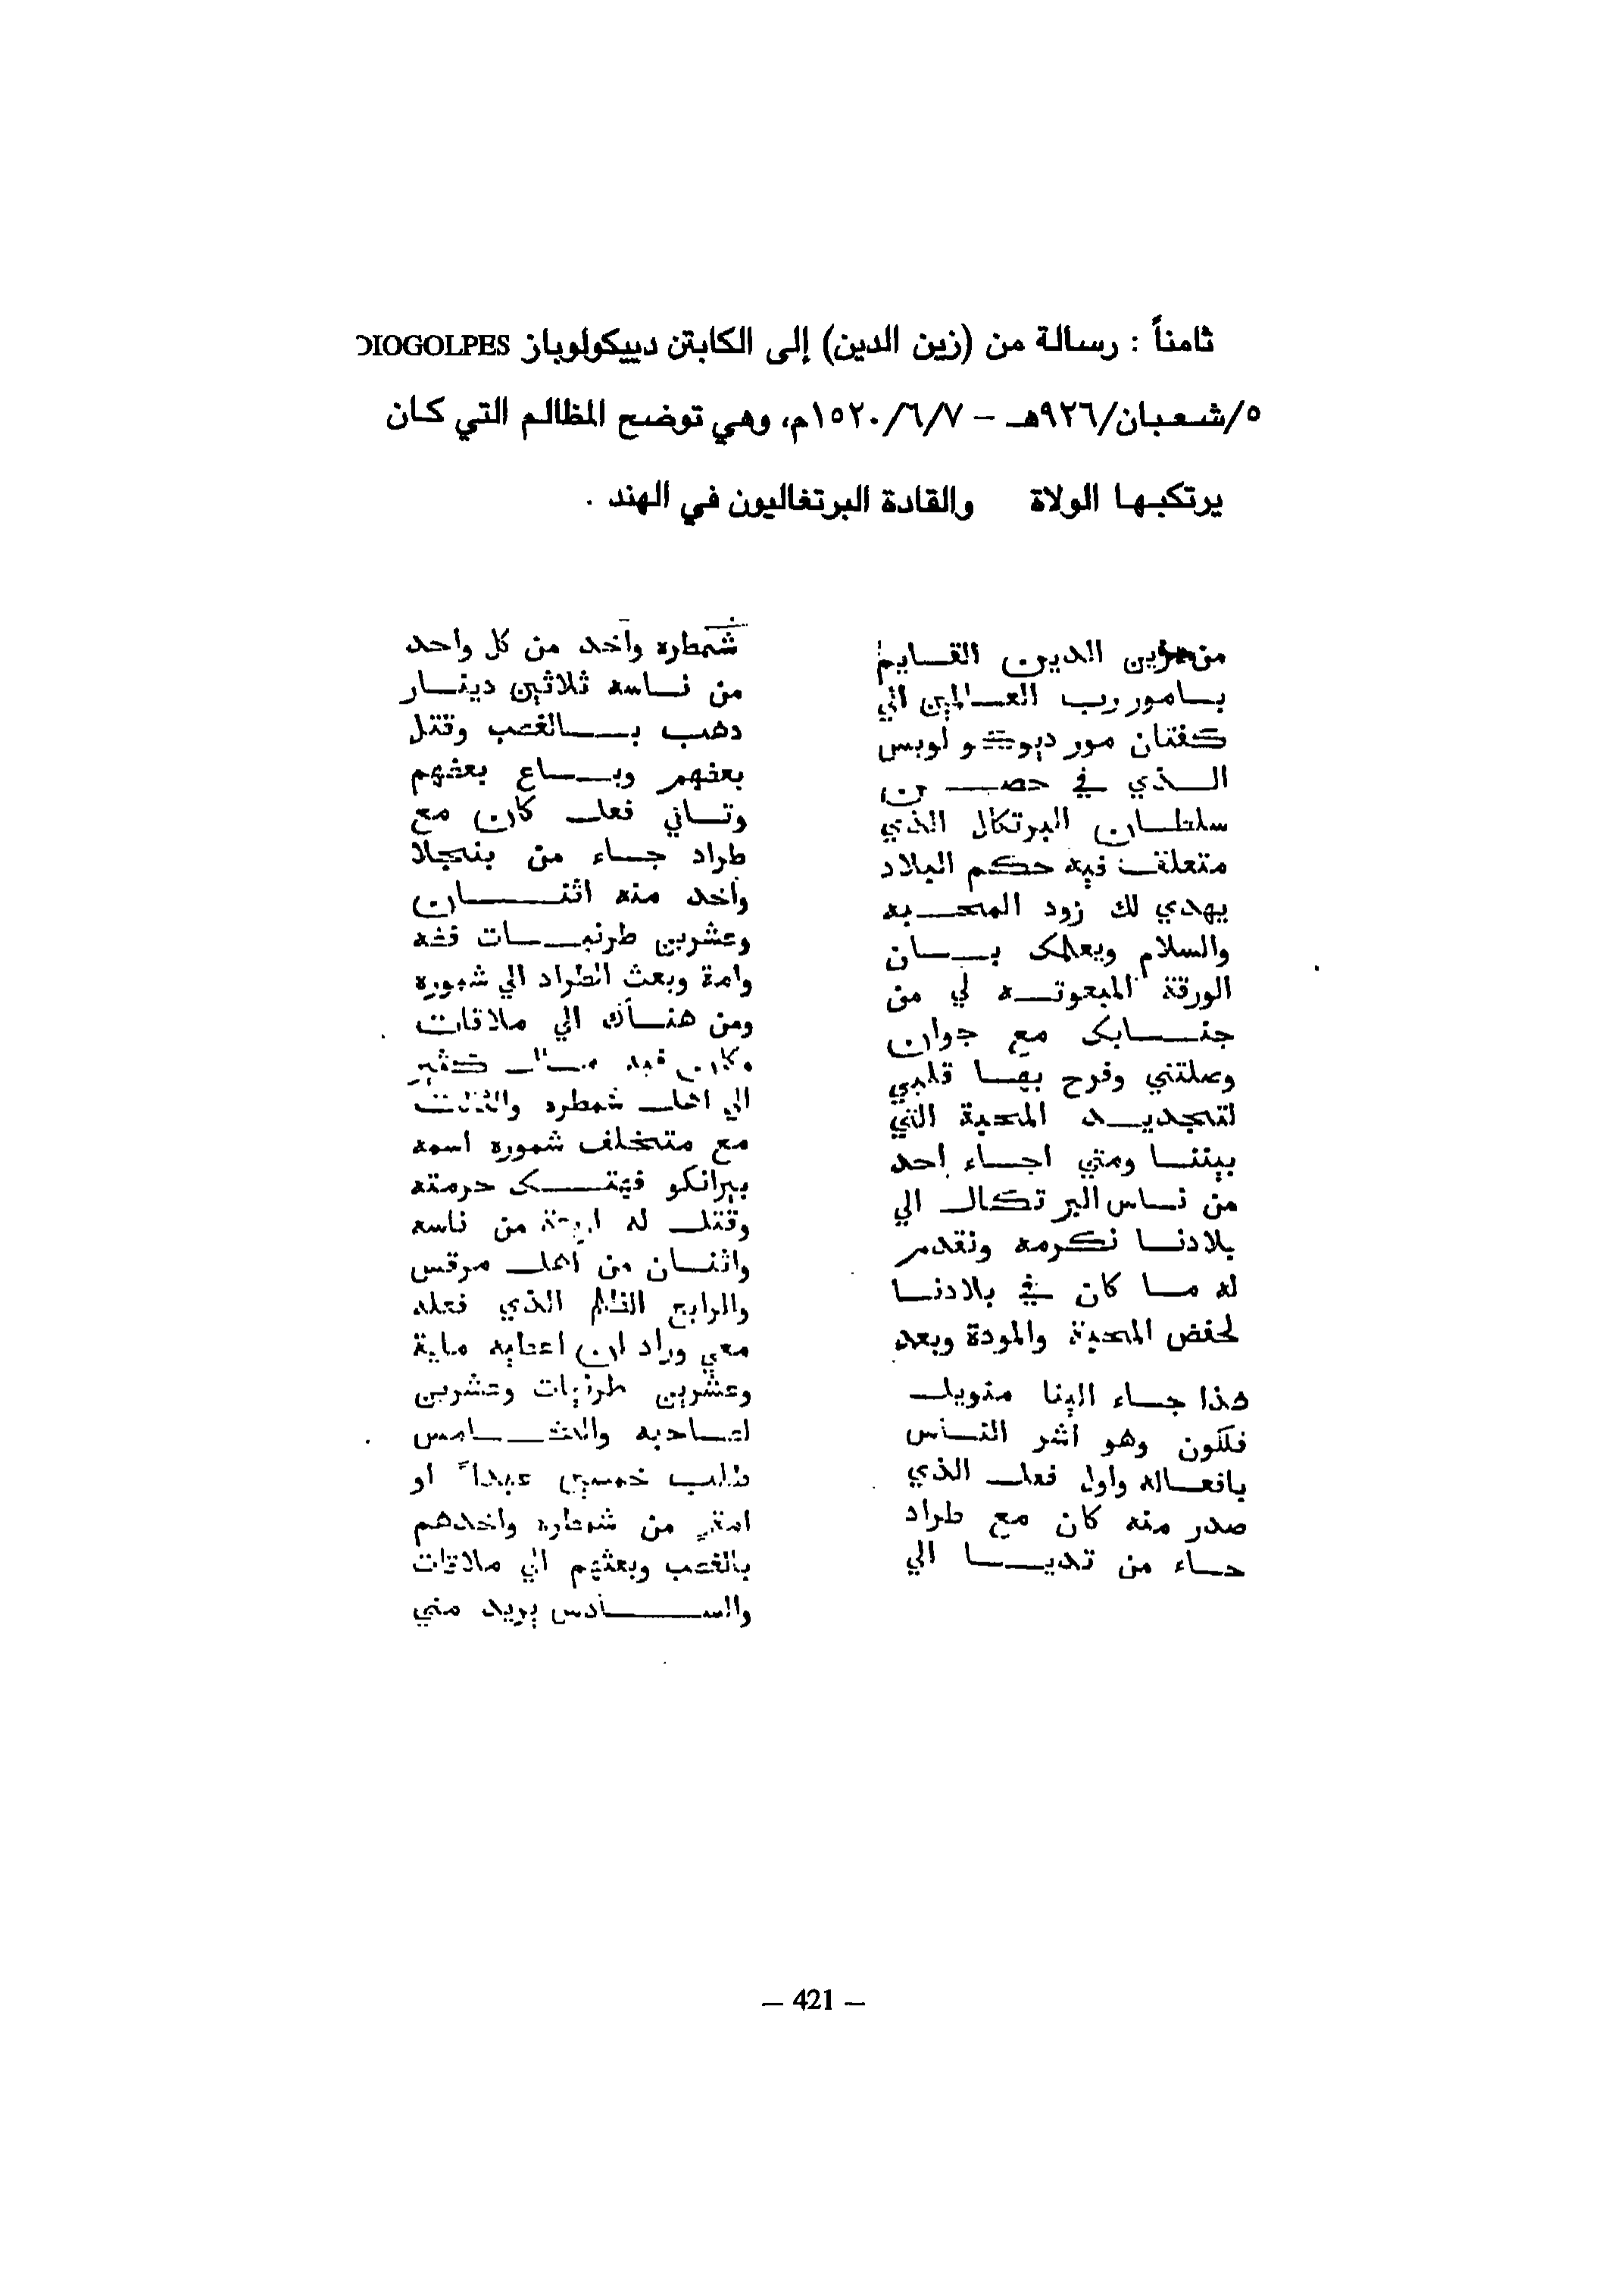 ثامناً : رسالة من (زين الدين) إلى الكابتن دييكولوباز DIOGOLPES
٥/شعبان/٩٢٦هـ – ١٥٢٠/٦/٧م، وهي توضح المظالم التي كان
يرتكبها الولاة والقادة البرتغاليون في الهند .
من زين الدين القايم
بامور رب العالمين الي
كفتان مور ديوكو لوبس
الذي في حصن
سلطان البرتكال الذي
متعلق فيه حكم البلاد
يهدي لك زود المحبه
والسلام ويعلمك بان
الورقة المبعوته لي من
جنابك مع جوان
وصلتني وفرح بها قلبي
لتجديد المحبة التي
بيننا ومتي اجاء احد
من ناس البرتكال الي
بلادنا نكرمه ونقدم
له ما كان في بلادنا
لحفض المحبة والمودة وبعد
هذا جاء الينا منويل
فلكون وهو اشر الناس
بافعاله واول فعل الذي
صدر منه كان مع طراد
جاء من تديا الي
شمطره واخد من كل واحد
من ناسه ثلاثين دينار
دهب بالغصب وقتل
بعضهم وباع بعضهم
وتاني فعل كان مع
طراد جاء من بنجلا
واخد منه اثنان
وعشرين طرنبات فضه
وامة وبعث الطراد الي شموره
ومن هناك الي ملاقات
وكان فيه مال كثير
الي اهل شمطره والثالث
مع متخلف شموره اسمه
بيرانكو فهتك حرمته
وقتل له اربعة من ناسه
واثنان من اهل مرقس
والرابع الظلم الذي فعله
معي وراد ان اعطيه ماية
وعشرين طرنبات وعشرين
لصاحبه والخامس
طلب خمسين عبداً او
امة من شمطره واخدهم
بالغصب وبعثهم الي ملاقات
والسادس يريد مني
– 421 –